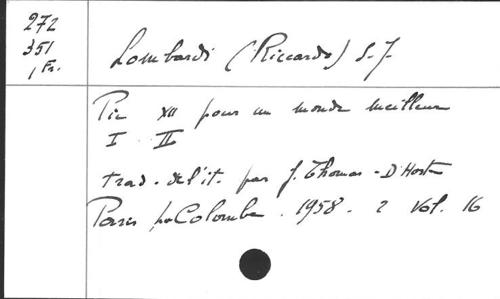 272
351
1 Fr.
Lombardi (Riccardo) S.J.
Pie XII pour un monde meilleur
I II
trad. de l'it. par J. Thomas-D'Hoste
Paris La Colombe. 1958. 2 Vol. 16